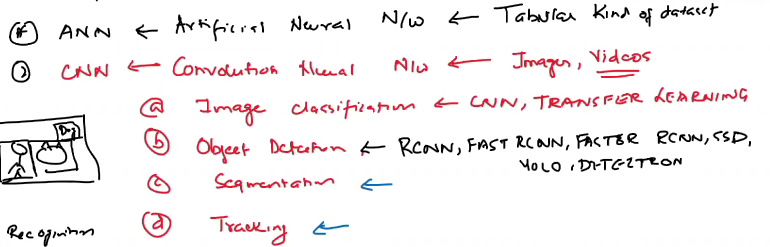 (*) ANN ← Artificial Neural N/W ← Tabular Kind of dataset
② CNN ← Convolution Neural N/W ← Images, Videos
ⓐ Image classification ← CNN, TRANSFER LEARNING
Dog
ⓑ Object Detection ← RCNN, FAST RCNN, FASTER RCNN, SSD,
YOLO, DETECTRON
ⓒ Segmentation ←
ⓓ Tracking ←
Recognition